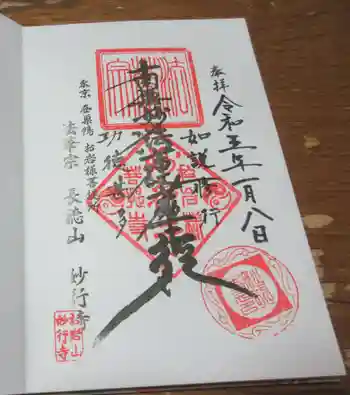 奉拝 令和五年一月八日
如説修行
南無妙法蓮華経
功徳甚多
東京 西巣鴨 お岩様菩提所
法華宗 長徳山 妙行寺
長徳山
妙行寺